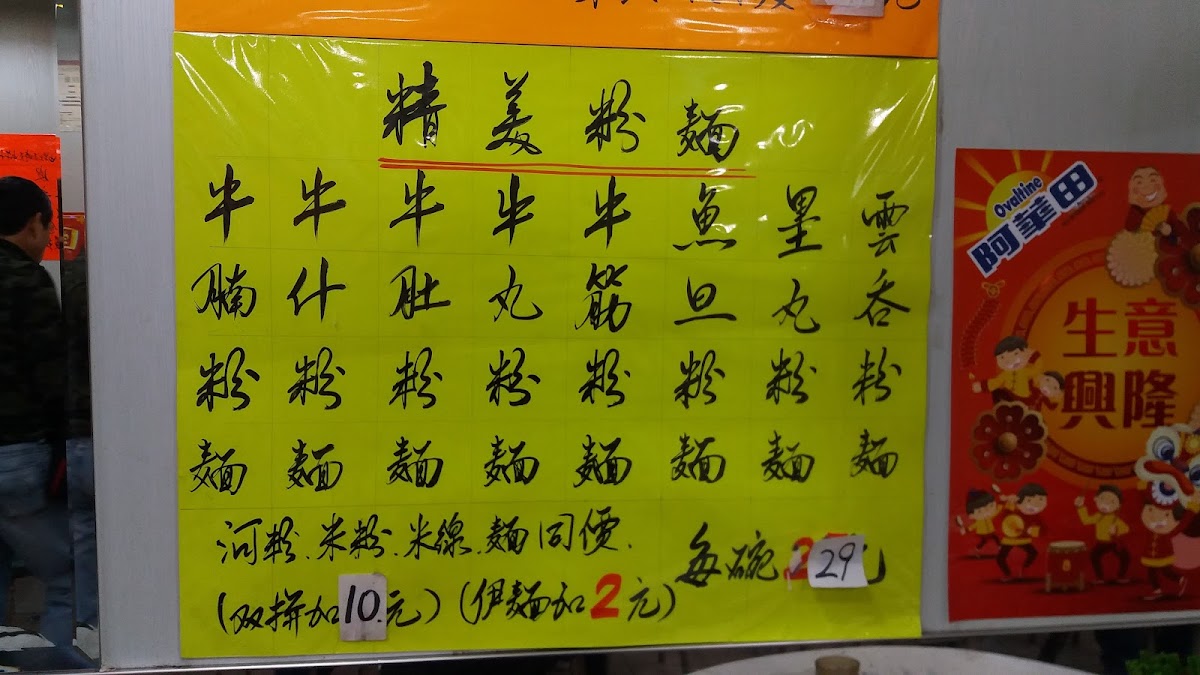 精美粉麵
牛腩粉麵
牛什粉麵
牛肚粉麵
牛丸粉麵
牛筋粉麵
魚旦粉麵
墨丸粉麵
雲吞粉麵
河粉.米粉.米線.麵同價.
每碗29元
(双拼加10元)(伊麵加2元)
Ovaltine
阿華田
生意
興隆